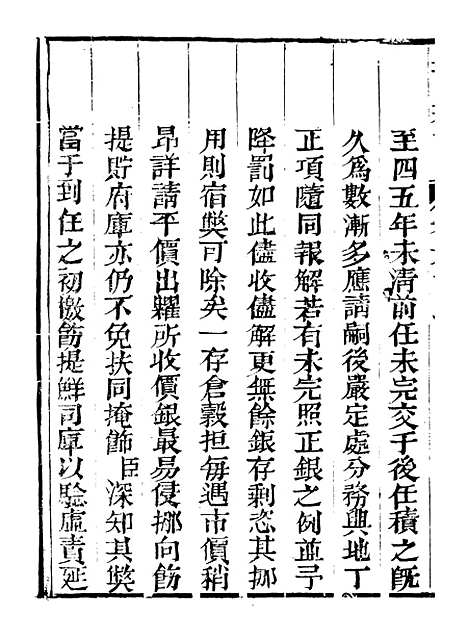 至四五年未清前任未完交于後任積之旣
久爲數漸多應請嗣後嚴定處分務與地丁
正項隨同報解若有未完照正銀之例並予
降罰如此儘收儘解更無餘銀存剩恣其挪
用則宿獘可除矣一存倉穀担每遇市價稍
昂詳請平價出糶所收價銀最易侵挪向飭
提貯府庫亦仍不免扶同掩飾臣深知其獘
當于到任之初檄飭提觧司庫以騐虛責延